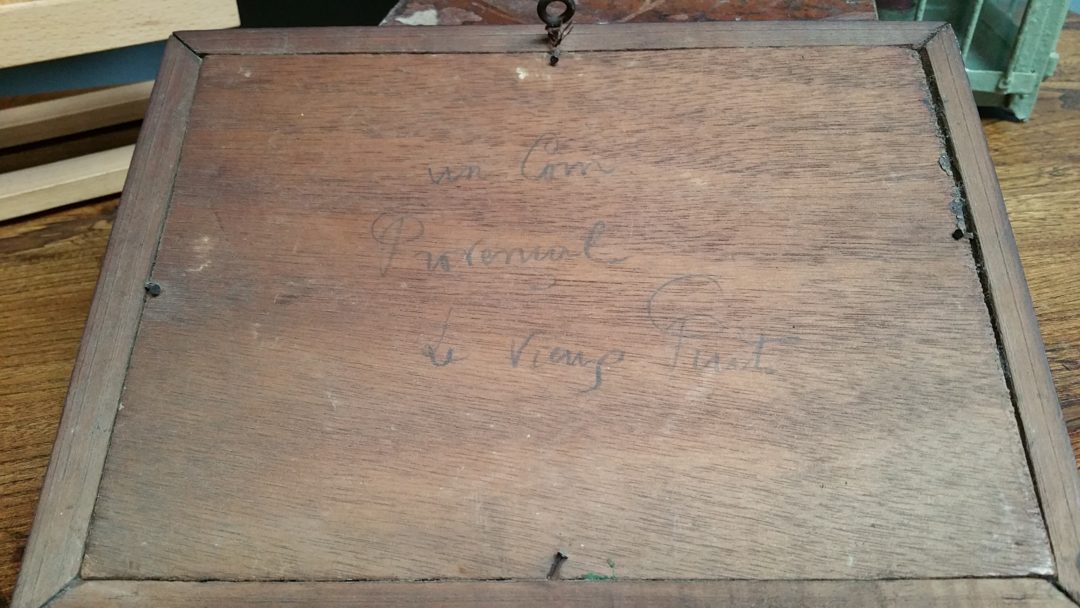 un Coin
Provencal
Le vieux Puit